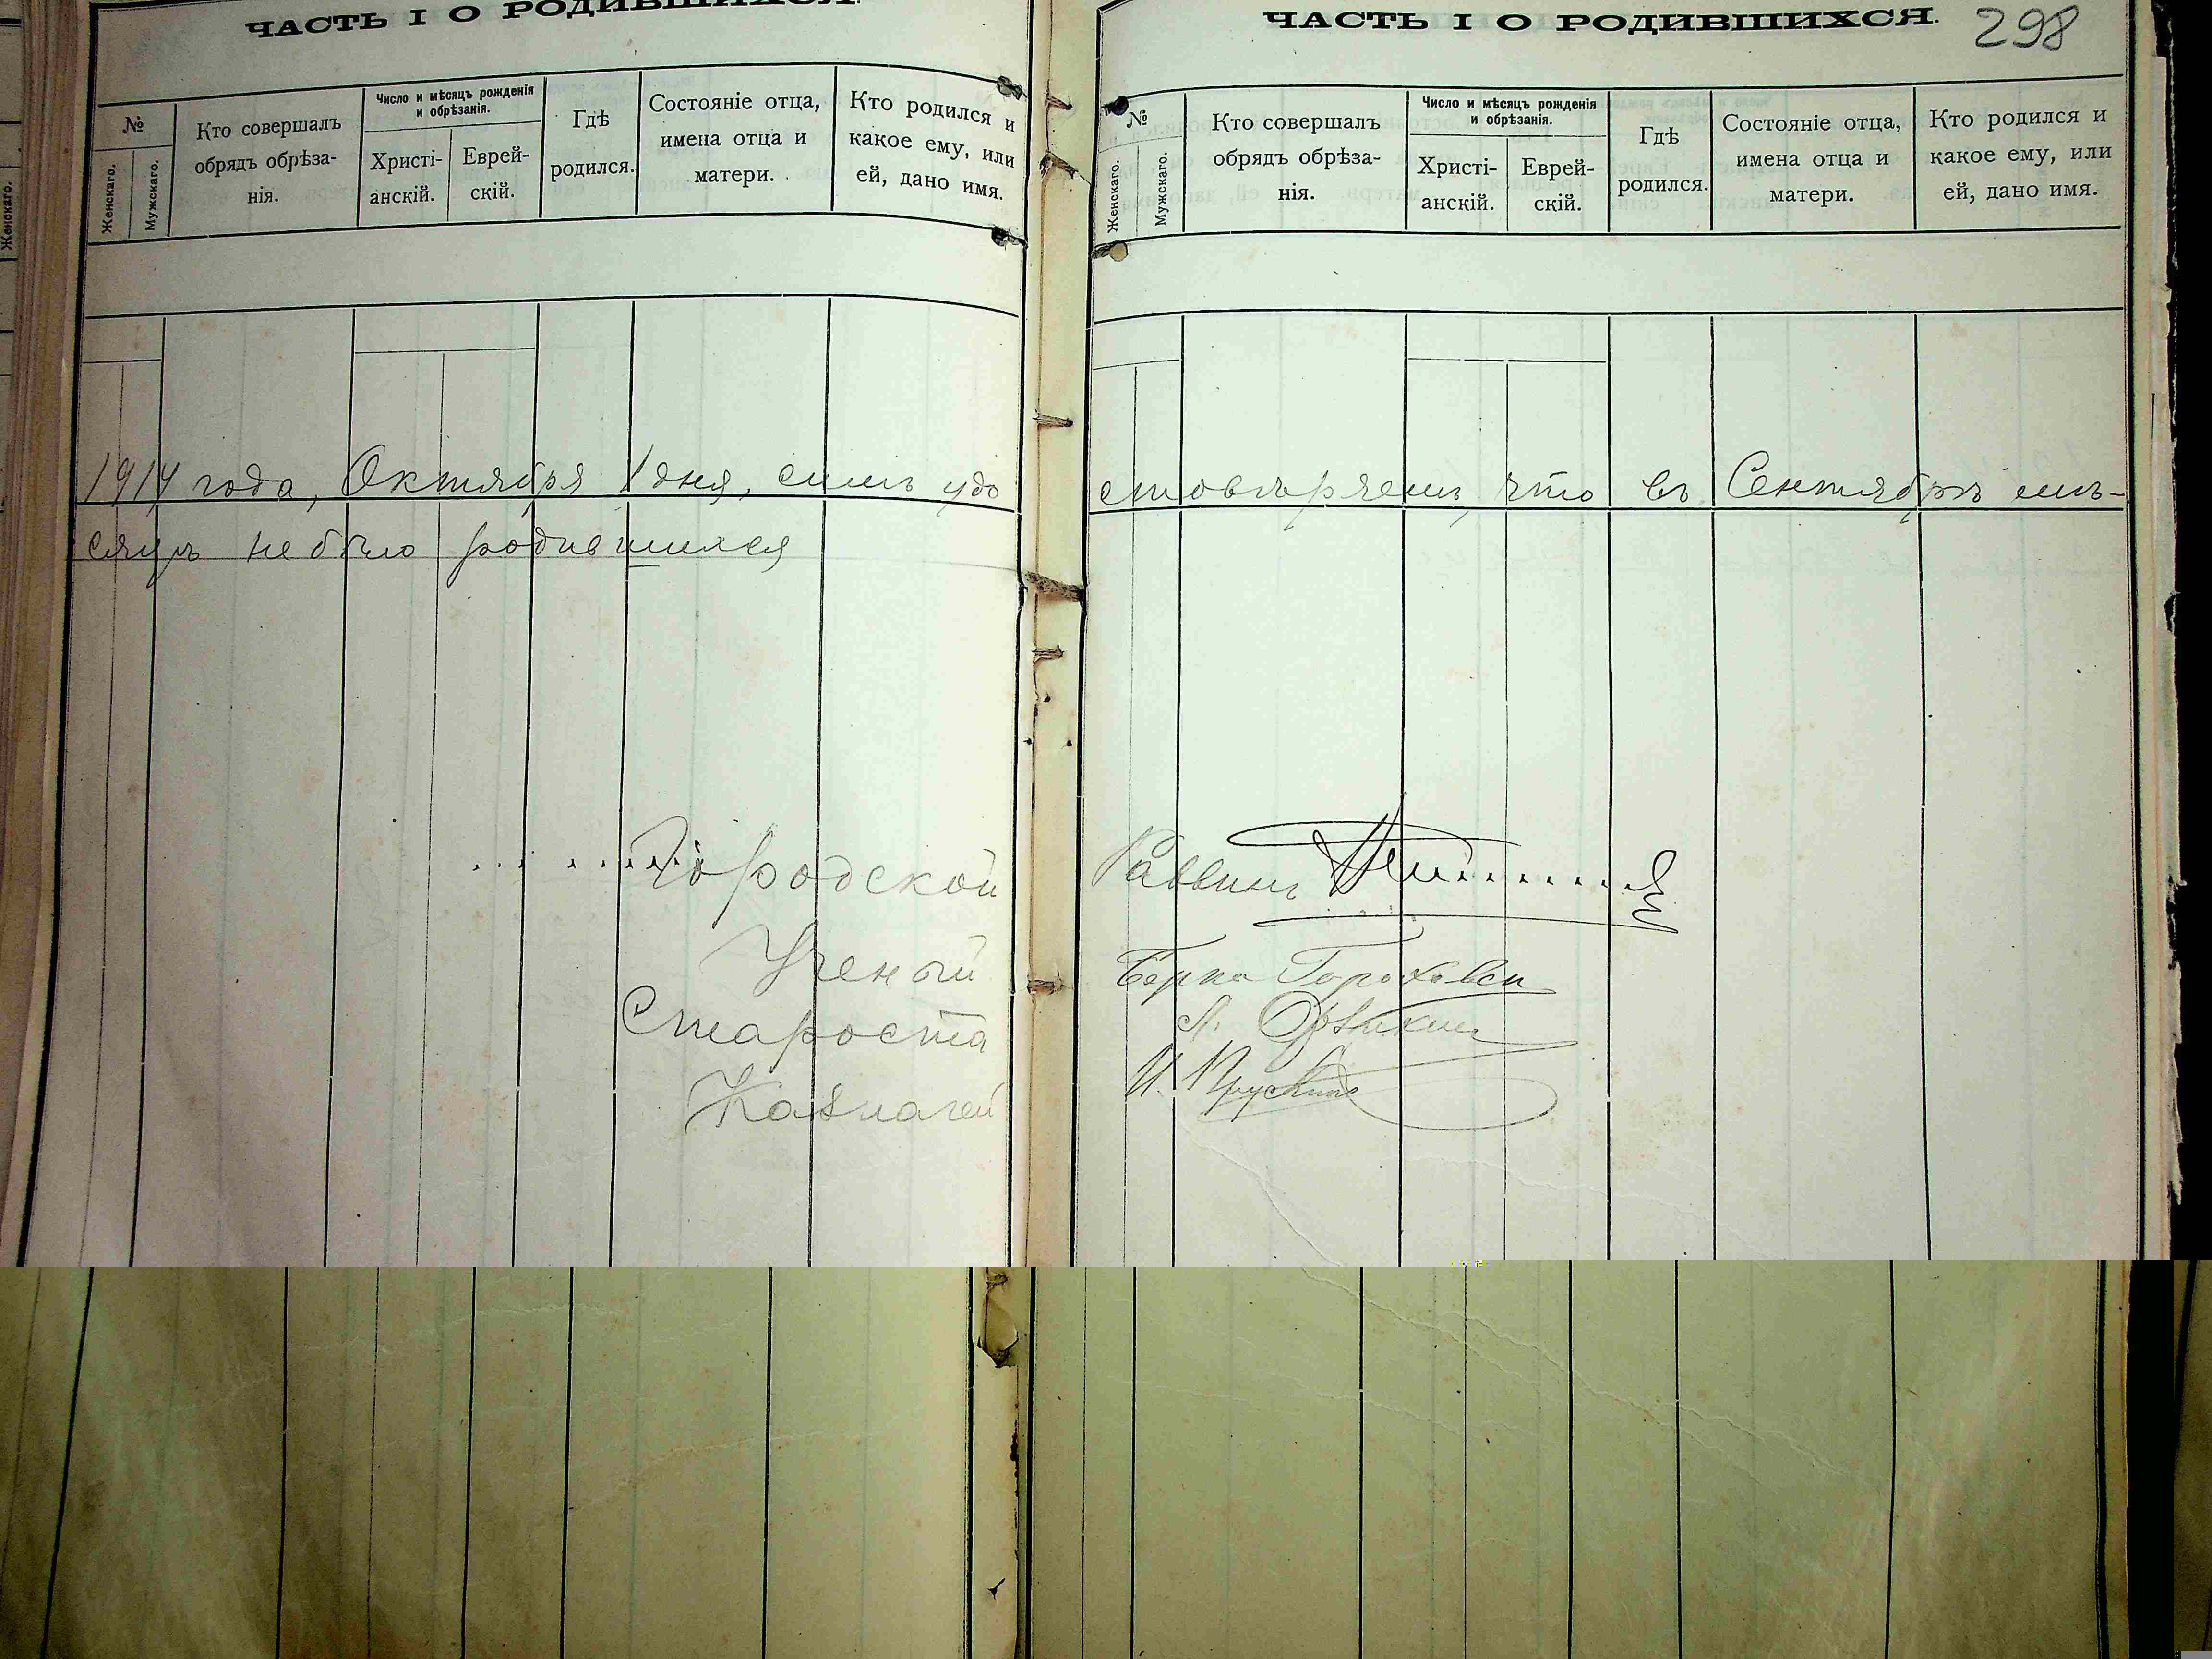 ЧАСТЬ I О РОДИВШИХСЯ.
№
Женскаго.
Мужскаго.
Кто совершалъ
обрядъ обрѣза-
нія.
Число и мѣсяцъ рожденія
и обрѣзанія.
Христі-
анскій.
Еврей-
скій.
Гдѣ
родился.
Состояніе отца,
имена отца и
матери.
Кто родился и
какое ему, или
ей, дано имя.
1914 года, Октября 1 дня, симъ удо
сяцѣ не было родившихся
Городской
Ученый
Староста
Казначей
ЧАСТЬ I О РОДИВШИХСЯ.
298
№
Женскаго.
Мужскаго.
Кто совершалъ
обрядъ обрѣза-
нія.
Число и мѣсяцъ рожденія
и обрѣзанія.
Христі-
анскій.
Еврей-
скій.
Гдѣ
родился.
Состояніе отца,
имена отца и
матери.
Кто родился и
какое ему, или
ей, дано имя.
стовѣряемъ, что въ Сентябрѣ мѣ-
Раввинъ
Берка
И.
Женскаго.